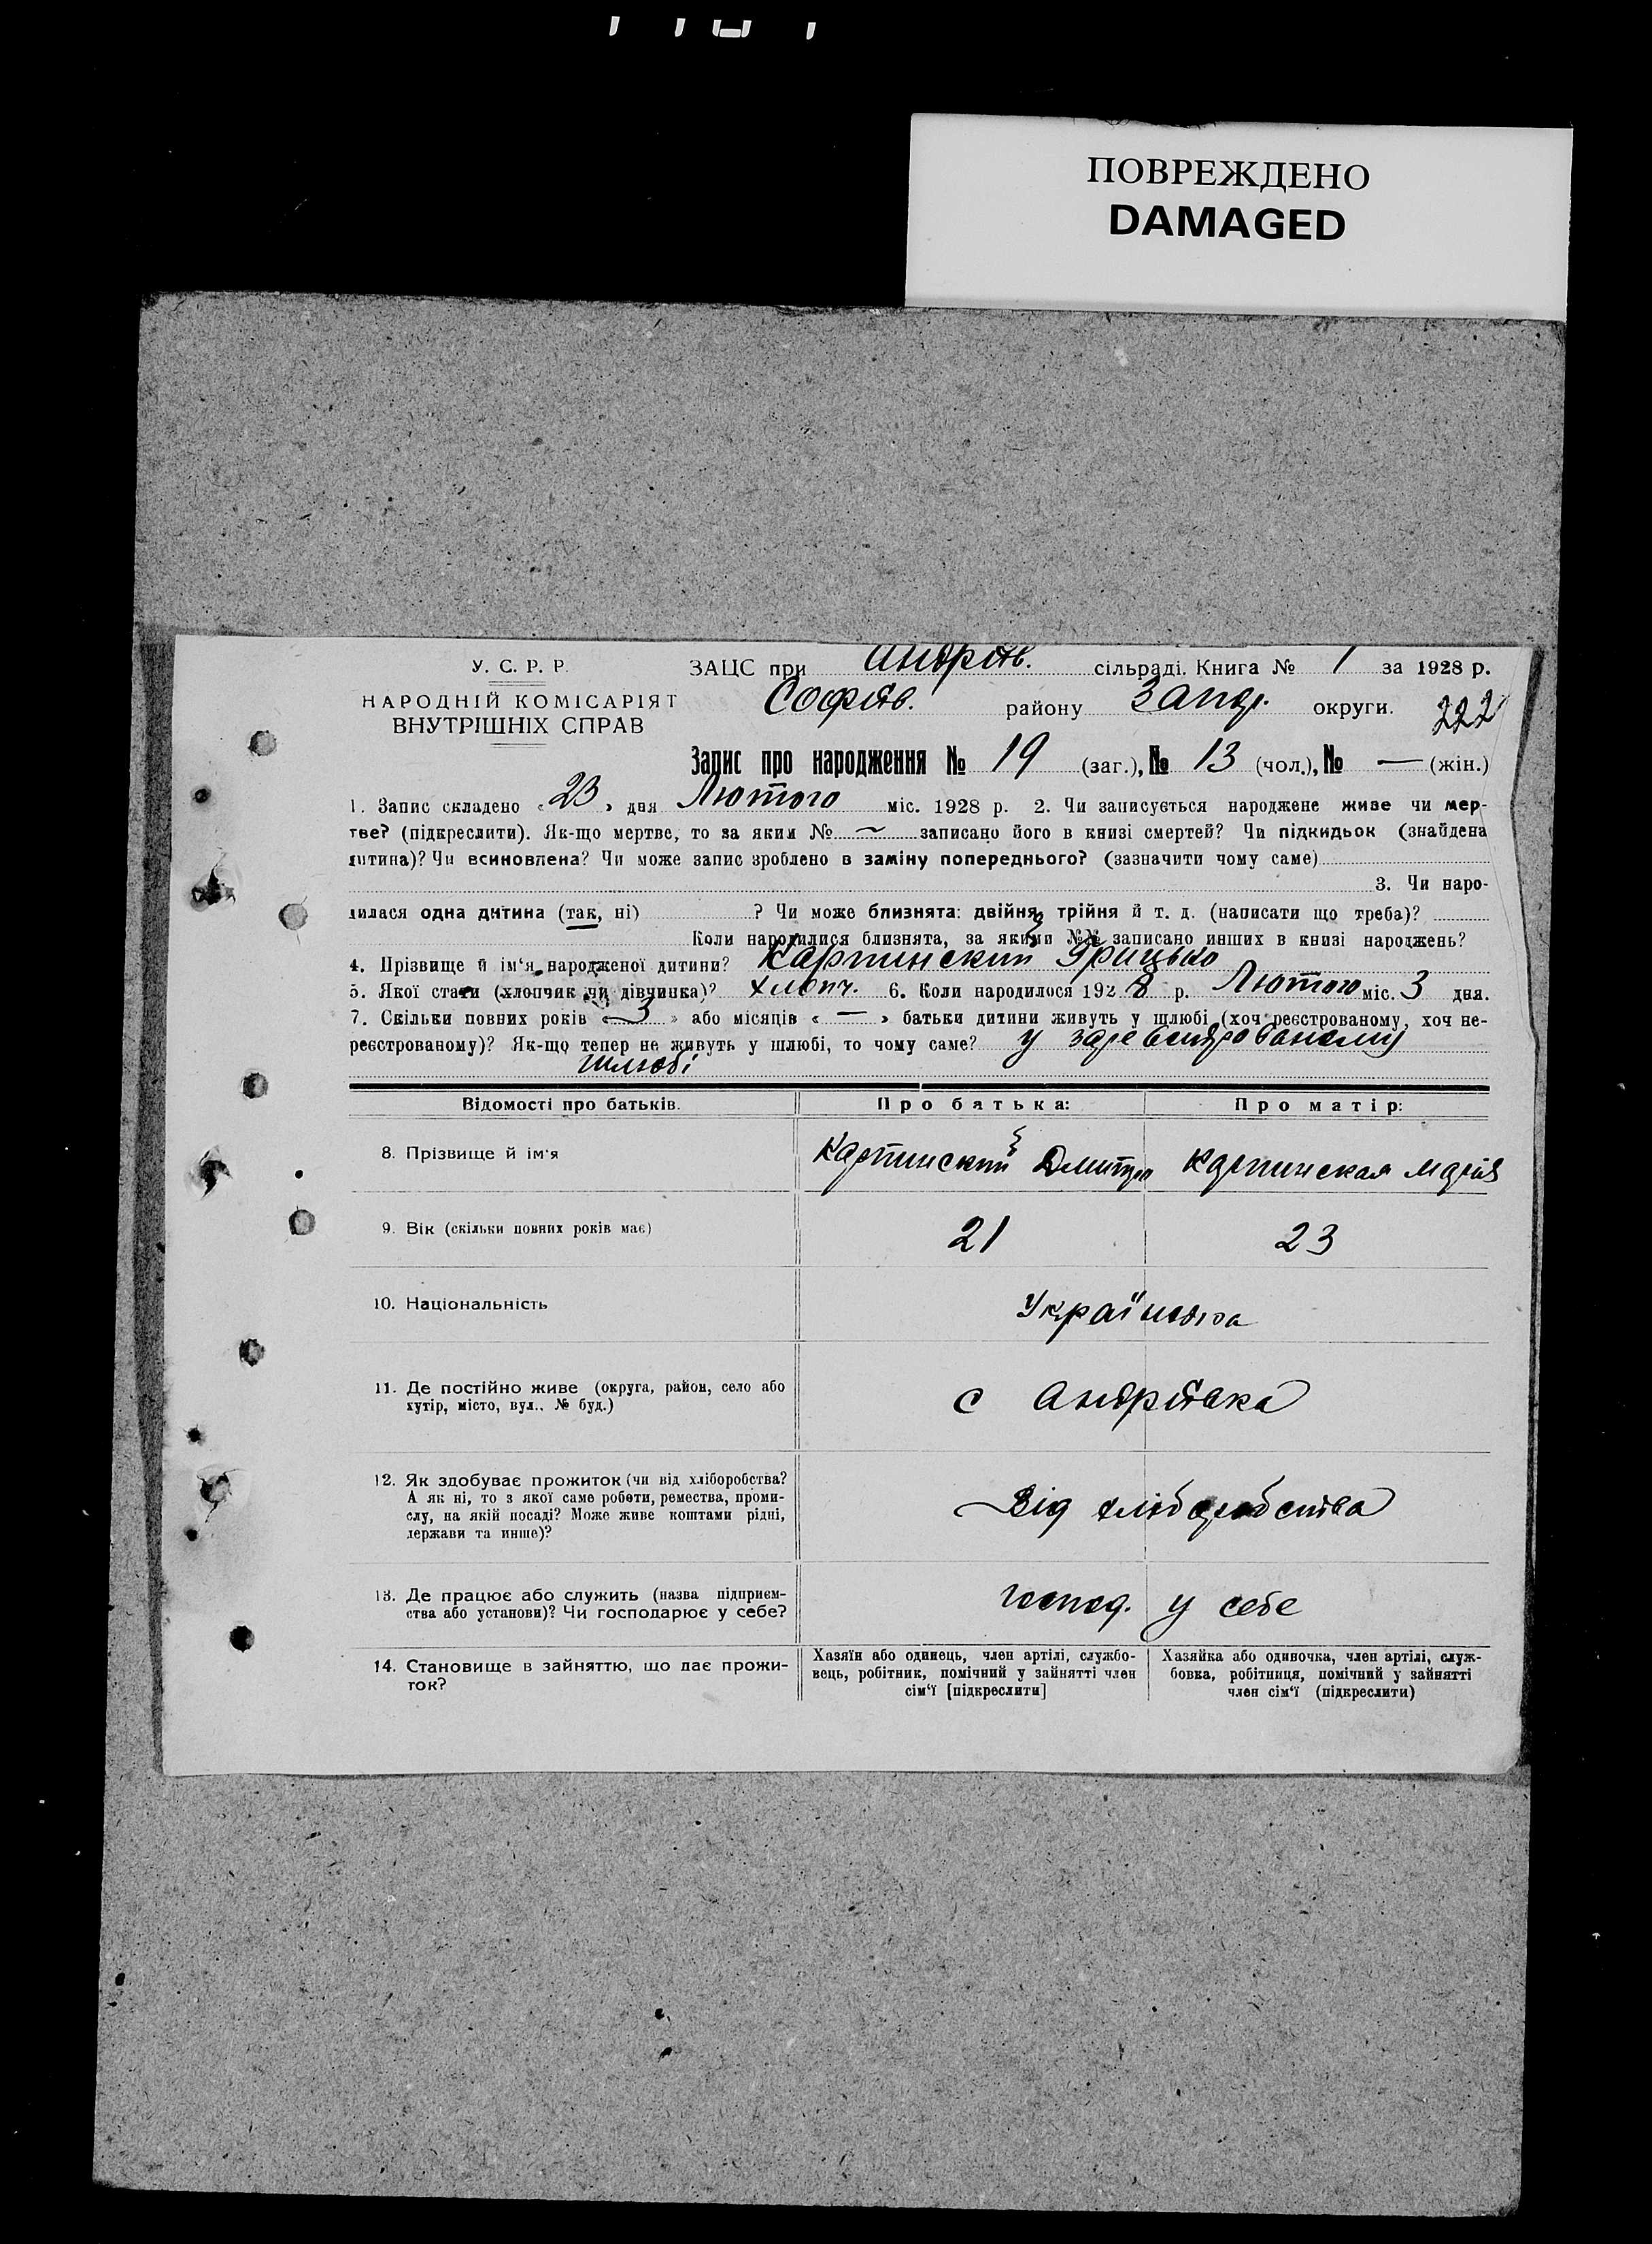 ПОВРЕЖДЕНО
DAMAGED
У. С. Р. Р.
НАРОДНІЙ КОМІСАРІЯТ
ВНУТРІШНІХ СПРАВ
ЗАЦС при Андріїв. сільраді. Книга № 1 за 1928 р.
Софіїв. району Запор. округи.
222
Запис про народження № 19 (заг.), № 13 (чол.), № — (жін.)
1. Запис складено «23» дня Лютого міс. 1928 р. 2. Чи записується народжене живе чи мер-
тве? (підкреслити). Як-що мертве, то за яким № ~ записано його в книзі смертей? Чи підкидьок (знайдена
дитина)? Чи всиновлена? Чи може запис зроблено в заміну попереднього? (зазначити чому саме)
3. Чи наро-
дилася одна дитина (так, ні) ? Чи може близнята: двійня, трійня й т. д. (написати що треба)?
Коли народилися близнята, за якими №№ записано инших в книзі народжень?
4. Прізвище й ім‘я народженої дитини? Карпинский Грицько
5. Якої стати (хлопчик чи дівчинка)? хлопч. 6. Коли народилося 1928 р. Лютого міс. 3 дня.
7. Скільки повних років «3» або місяців «—» батьки дитини живуть у шлюбі (хоч реєстрованому, хоч не-
реєстрованому)? Як-що тепер не живуть у шлюбі, то чому саме? у
шлюбі
Відомості про батьків. Про батька: Про матір:
8. Прізвище й ім‘я Карпинский Дмитро Карпинская Марія
9. Вік (скільки повних років має) 21 23
10. Національність
11. Де постійно живе (округа, район, село або
хутір, місто, вул.. № буд.) с Андріївка
12. Як здобуває прожиток (чи від хліборобства?
А як ні, то з якої саме роботи, ремества, проми-
слу, на якій посаді? Може живе коштами рідні,
держави та инше)? Від хліборобства
13. Де працює або служить (назва підприєм-
ства або установи)? Чи господарює у себе? господ. у себе
14. Становище в зайняттю, що дає прожи-
ток?
Хазяїн або одинець, член артілі, службо-
вець, робітник, помічний у зайнятті член
сім‘ї [підкреслити]
Хазяйка або одиночка, член артілі, служ-
бовка, робітниця, помічний у зайнятті
член сім‘ї (підкреслити)